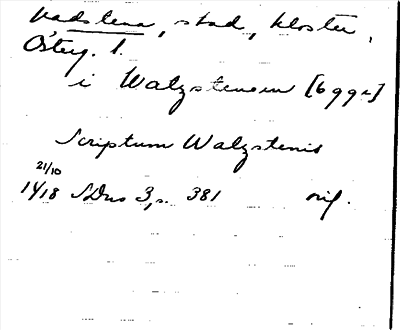 Vadstena, stad, kloster,
Österg. l.
i Walzstenom [6 gg r]
Scriptum Walzstenis
21/10
1418 SDns 3, s. 381 orig.